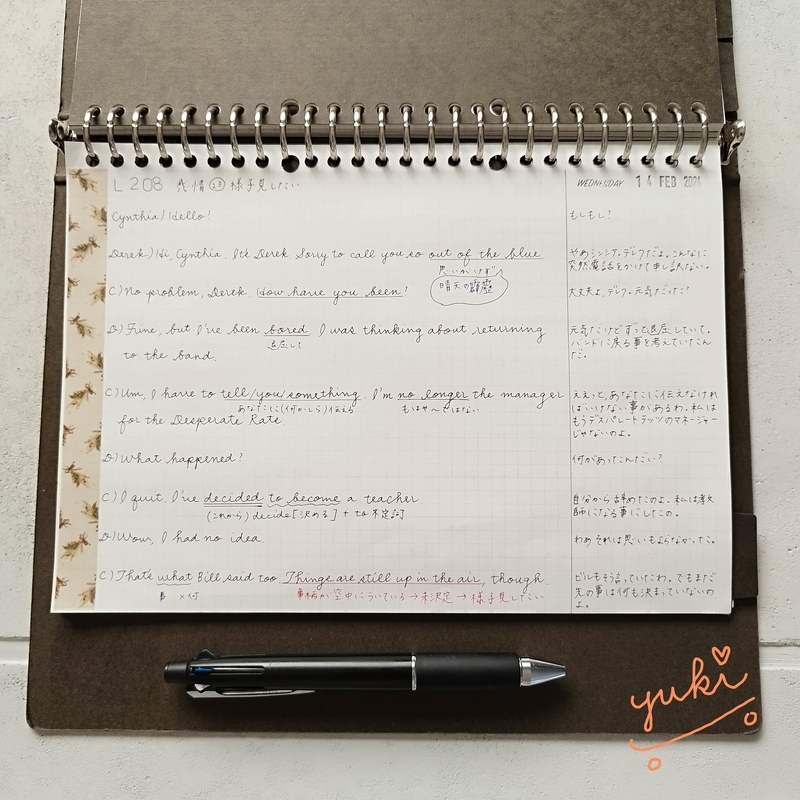 L 208 感情 28 様子見したい
WEDNESDAY 14 FEB 2024
Cynthia) Hello?
もしもし?
Derek) Hi, Cynthia. It's Derek Sorry to call you so out of the blue
思いがけず
晴天の霹靂
やあシンシア。デレクだよ。こんなに
突然電話をかけて申し訳ない。
C) No problem, Derek How have you been?
大丈夫よ、デレク。元気だった?
D) Fine, but I've been bored. I was thinking about returning
退屈して
to the band.
元気だけどずっと退屈していて。
バンドに戻る事を考えていたん
だ。
C) Um, I have to tell/you/something. I'm no longer the manager
あなたに(何かしら)伝える
もはや〜ではない
for the Desperate Rats
ええっと、あなたに伝えなけれ
ばいけない事があるわ。私は
もうデスパレートラッツのマネージャー
じゃないのよ。
D) What happened?
何があったんだい?
C) I quit. I've decided to become a teacher
(これから) decide [決める] + to 不定詞
自分から辞めたのよ。私は教
師になる事にしたの。
D) Wow, I had no idea.
わあそれは思いもよらなかった。
C) That's what Bill said too. Things are still up in the air, though.
事 ×何
事柄が空中にういている→未決定→様子見したい
ビルもそう言っていたわ。でもまだ
先の事は何も決まっていないの
よ。
yuki